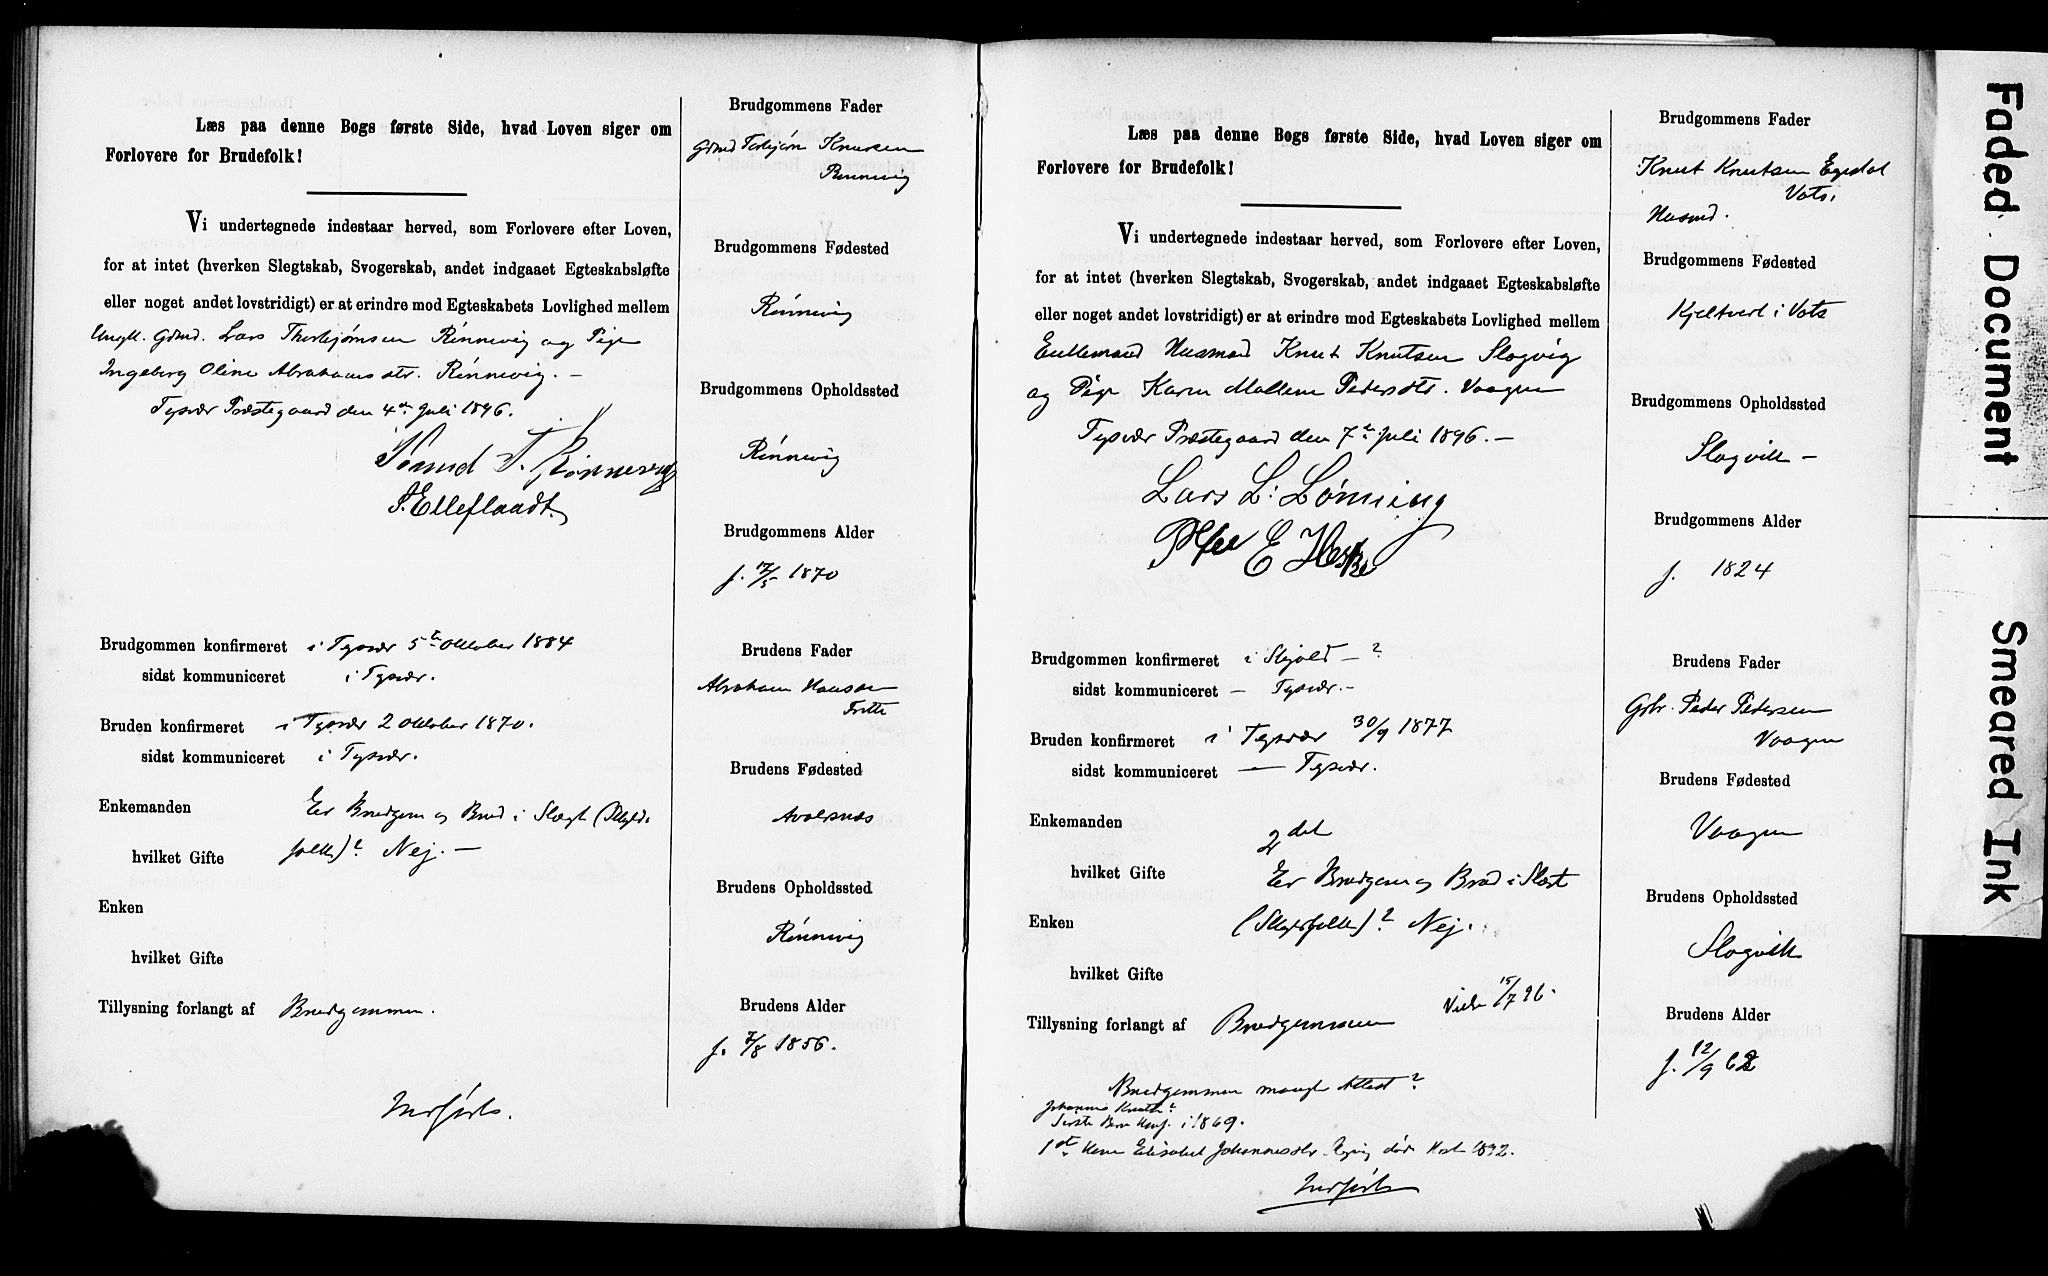 Læs paa denne Bogs første Side, hvad Loven siger om
Forlovere for Brudefolk!
Vi undertegnede indestaar herved, som Forlovere efter Loven,
for at intet (hverken Slegtskab, Svogerskab, andet indgaaet Egteskabsløfte
eller noget andet lovstridigt) er at erindre mod Egteskabets Lovlighed mellem
Ungk. Gdmd. Lars Thorbjørnsen Rønnevig og Pige
Ingeborg Oline Abrahamsdtr. Rønnevig. —
Tysvær Præstegaard den 4de Juli 1896.
T. Rønnevig
Brudgommen konfirmeret i Tysvær 5te Oktober 1884
sidst kommuniceret i Tysvær.
Bruden konfirmeret i Tysvær 2 Oktober 1870.
sidst kommuniceret i Tysvær.
Enkemanden Er Brudgom og Brud i Slægt (Skyld-
hvilket Gifte folk)? Nej. —
Enken
hvilket Gifte
Tillysning forlangt af Brudgommen.
Indført.
Brudgommens Fader
Gdmd Torbjørn Knutsen
Rønnevig
Brudgommens Fødested
Rønnevig
Brudgommens Opholdssted
Rønnevig
Brudgommens Alder
f. 17/5 1870
Brudens Fader
Abraham Hansen
Brudens Fødested
Avaldsnæs
Brudens Opholdssted
Rønnevig
Brudens Alder
f. 7/8 1856.
Læs paa denne Bogs første Side, hvad Loven siger om
Forlovere for Brudefolk!
Vi undertegnede indestaar herved, som Forlovere efter Loven,
for at intet (hverken Slegtskab, Svogerskab, andet indgaaet Egteskabsløfte
eller noget andet lovstridigt) er at erindre mod Egteskabets Lovlighed mellem
Enkemand Husmand Knut Knutsen Slogvig
og Pige Karen Mallene Pedersdtr. Vaagen
Tysvær Præstegaard den 7de Juli 1896. —
Lars L: Lønning
E Heske
Brudgommen konfirmeret i Skjold — ?
sidst kommuniceret — Tysvær. —
Bruden konfirmeret i Tysvær 30/9 1877
sidst kommuniceret — Tysvær.
Enkemanden
hvilket Gifte 2det
Er Brudgom og Brud i Slægt
Enken (Skyldfolk)? Nej.
hvilket Gifte
Viede 15/7 96.
Tillysning forlangt af Brudgommen
Brudgommen mangler Attest?
i 1869.
1ste Kone Elisabet Johannesdtr. død Høst 1892.
Indført
Brudgommens Fader
Knut Knutsen Egedal
Vats.
Husmd.
Brudgommens Fødested
i Vats
Brudgommens Opholdssted
Slogvik —
Brudgommens Alder
f. 1824
Brudens Fader
Gbr. Peder Pedersen
Vaagen
Brudens Fødested
Vaagen
Brudens Opholdssted
Slogvik
Brudens Alder
f. 12/9 62
Faded Document
Smeared Ink